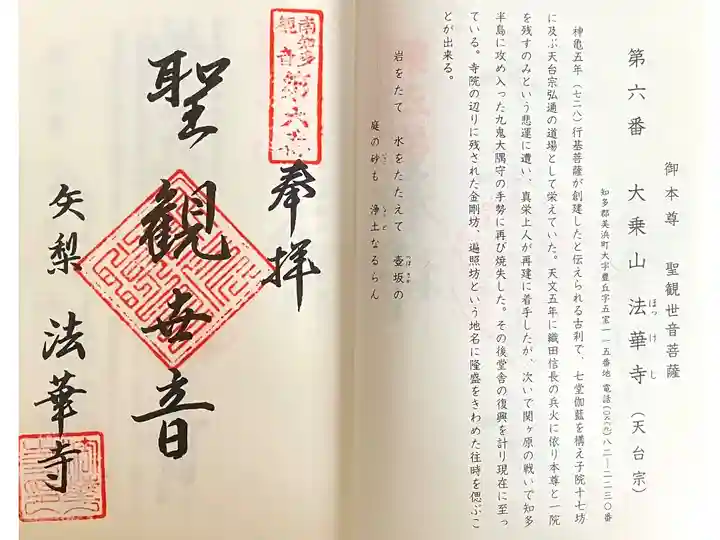 第六番 大乗山 法華寺(天台宗)
ほっけじ
御本尊 聖観世音菩薩
知多郡美浜町大字豊丘字五宝一一五番地 電話(〇五六九)八二―二二三〇番
神亀五年(七二八)行基菩薩が創建したと伝えられる古刹で、七堂伽藍を構え子院十七坊
に及ぶ天台宗弘通の道場として栄えていた。天文五年に織田信長の兵火に依り本尊と一院
を残すのみという悲運に遭い、真栄上人が再建に着手したが、次いで関ヶ原の戦いで知多
半島に攻め入った九鬼大隅守の手勢に再び焼失した。その後堂舎の復興を計り現在に至っ
ている。寺院の辺りに残された金剛坊、遍照坊という地名に隆盛をきわめた往時を偲ぶこ
とが出来る。
岩をたて 水をたたえて 壺坂の
つぼさか
庭の砂も 浄土なるらん
いさご じょうど
南知多
観音
第六番
奉拝
聖観世音
矢梨 法華寺